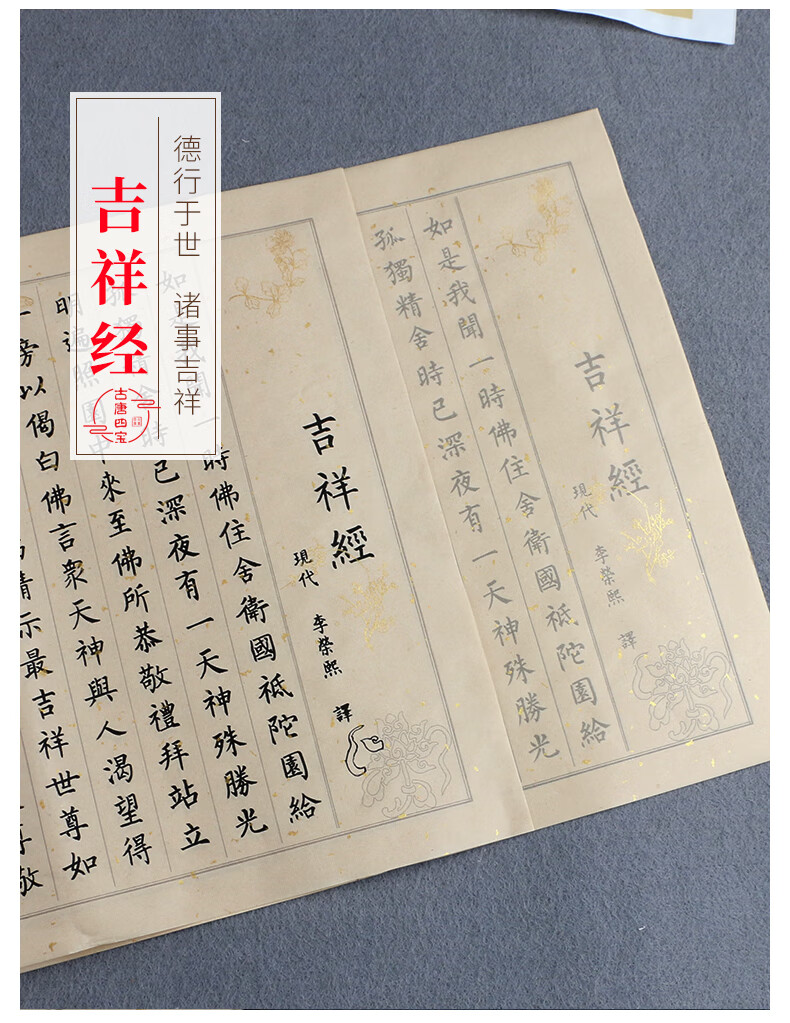 德行于世 诸事吉祥
吉祥经
古唐四宝
吉祥經
現代 李榮熙 譯
如是我聞一時佛住舍衛國祇陀園給
孤獨精舍時已深夜有一天神殊勝光
吉祥經
現代 李榮熙 譯
如是我聞一時佛住舍衛國祇陀園給
孤獨精舍時已深夜有一天神殊勝光
明遍照園中來至佛所恭敬禮拜站立
一旁以偈白佛言衆天神與人渴望得
請示最吉祥世尊如
敬